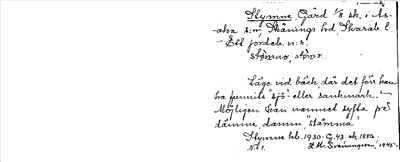 Stymne Gård 1/8 sk. i As-
aka s:n, Skånings hd, Skarab. l.
– Ett jordeb. n:r.
stømnə, stømə.
Läge vid bäck, där det förr kan
ha funnits "sjö" eller sankmark. –
Möjligen kan namnet syfta på
dämme, damm "stämma".
Stymne hb. 1930. G. 43. ek. 1880.
N:r 1. 1945.